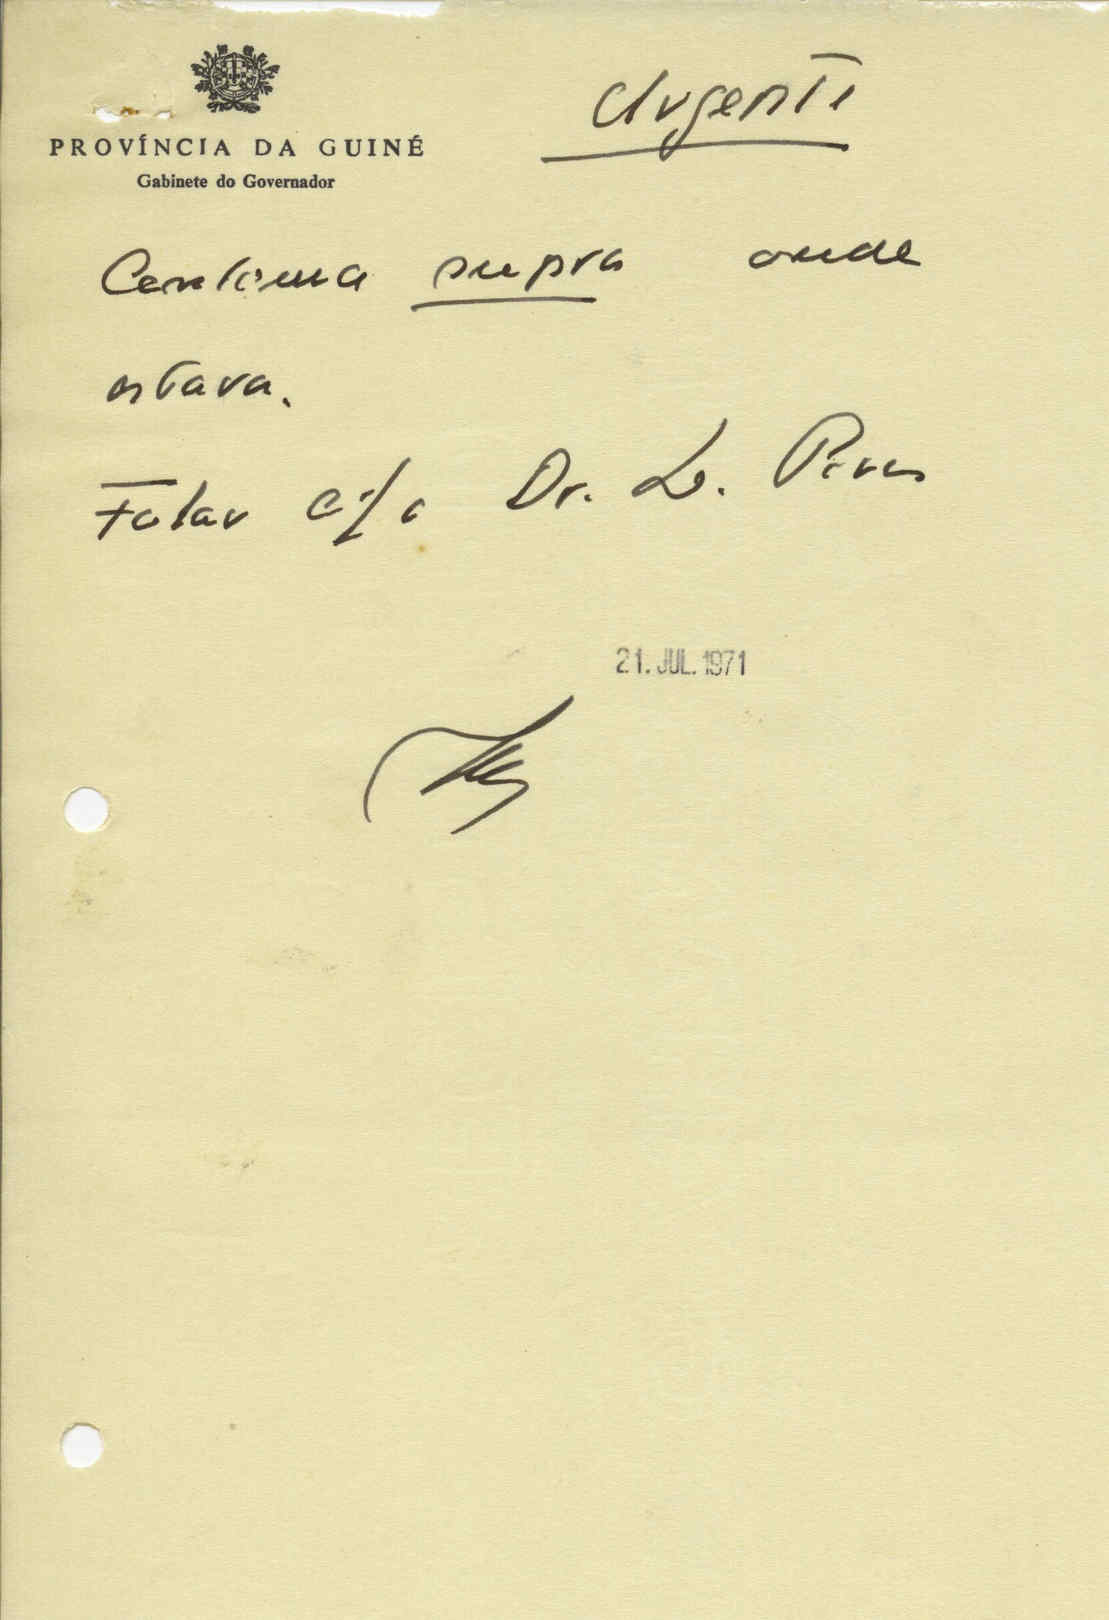 PROVÍNCIA DA GUINÉ
Gabinete do Governador
Urgente
Continua supra onde
estava.
Falar c/o Dr. L. Pires
21. JUL. 1971